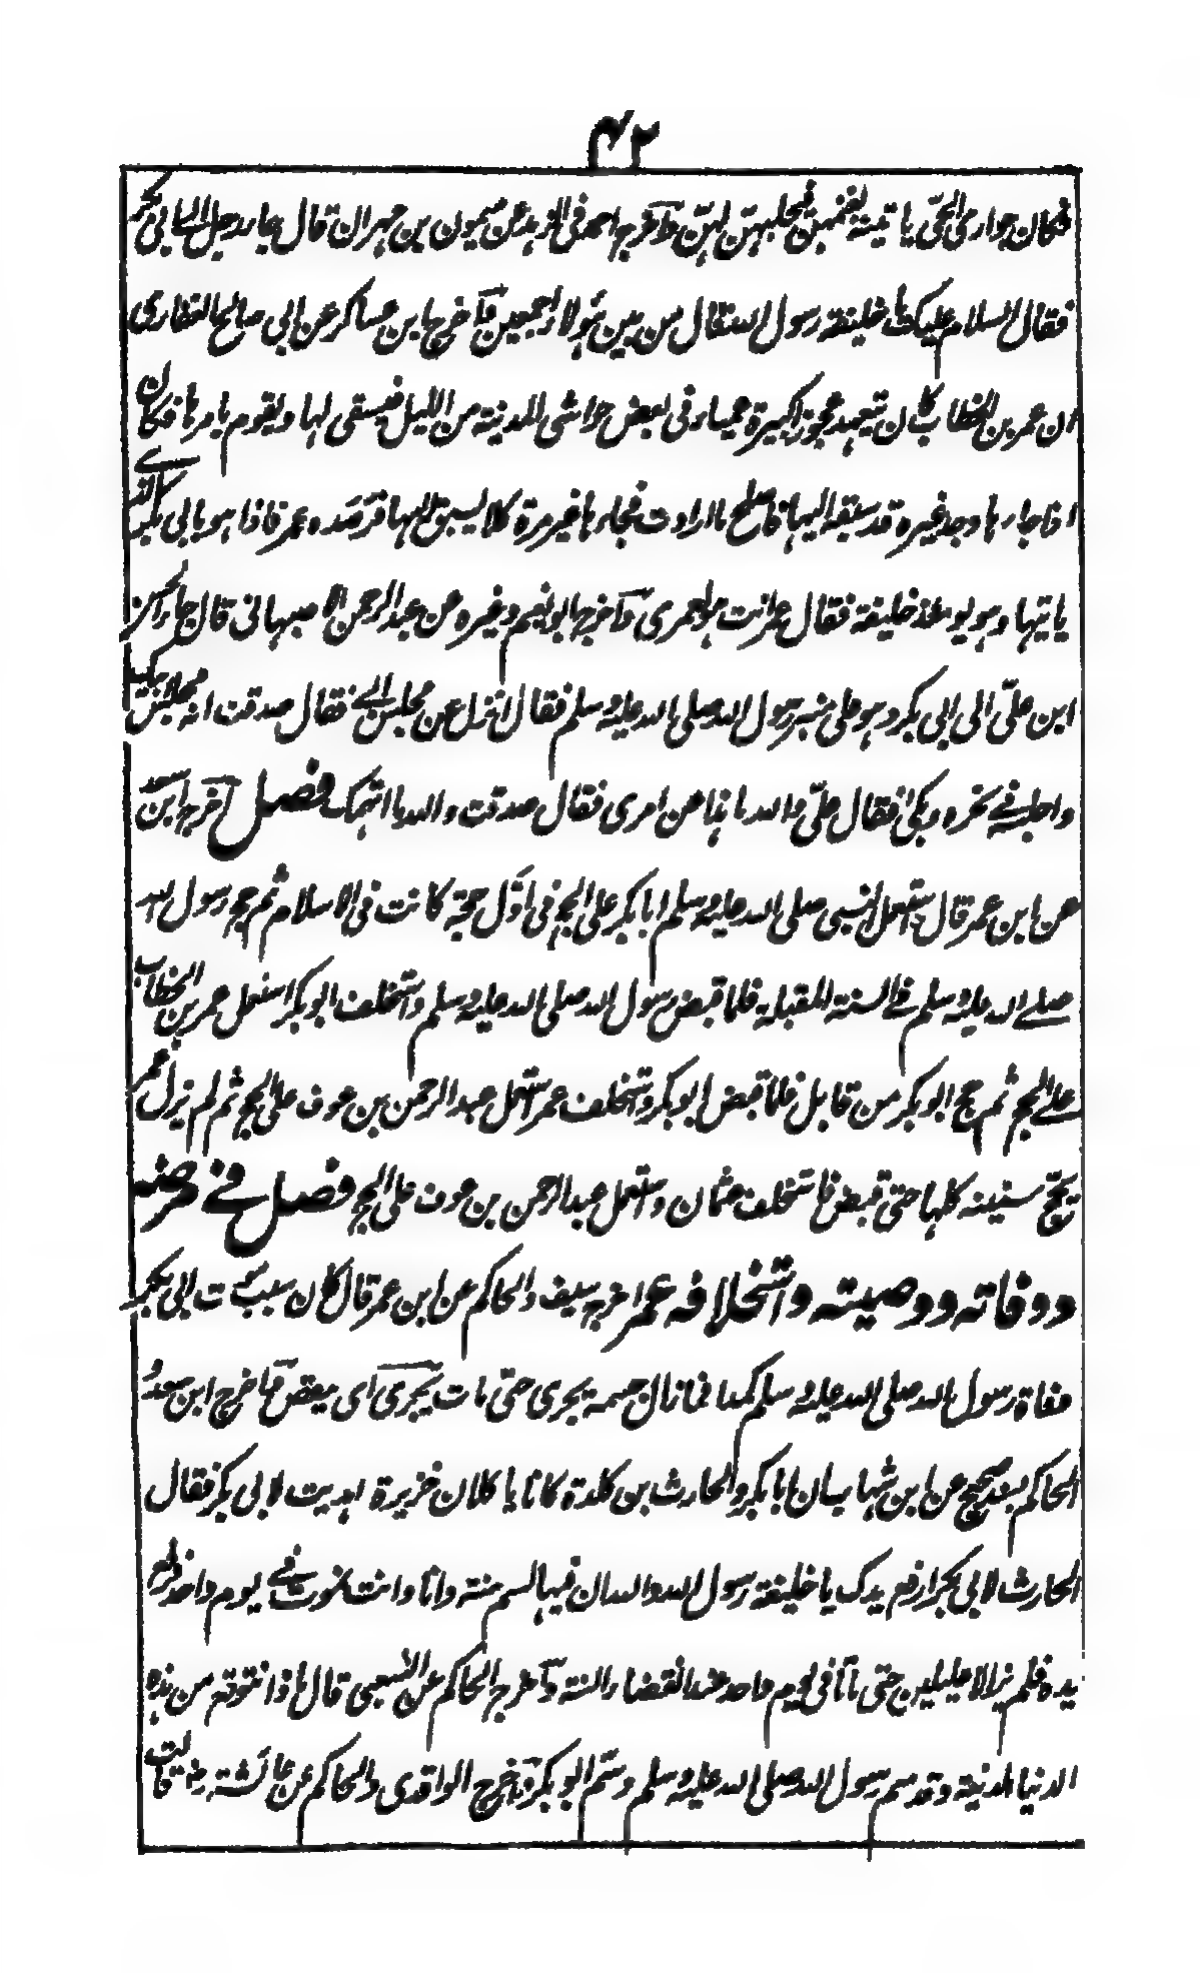 ٤٢
فكان جوارى الحىّ ياتينه بغنمهن فيحلبهنّ لهنّ وآخرج احمد فى الزهد عن ميمون بن مهران قال جاء رجل الى ابى بكر
فقال السلام عليك يا خليفة رسول الله قال من بين هؤلاء اجمعين وآخرج ابن عساكر عن ابى صالح الغفارى
ان عمر بن الخطاب كان يتعهد عجوزا كبيرة عمياء فى بعض حواشى المدينة من الليل فيسقى لها ويقوم بامرها فكان
اذا جاءها وجد غيره قد سبقه اليها فاصلح ما ارادت فجاءها غير مرة كلا يسبق اليها فرصده عمر فاذا هو بابى بكر الذى
ياتيها وهو يومئذ خليفة فقال عمر انت هو لعمرى وآخرج ابو نعيم وغيره عن عبد الرحمن الاصبهانى قال جاء الحسن
ابن علىّ الى ابى بكر وهو على منبر رسول الله صلى الله عليه وسلم فقال انزل عن مجلس ابى فقال صدقت انه مجلس ابيك
واجلسه فى حجره وبكى فقال علىّ والله ما هذا عن امرى فقال صدقت والله ما اتهمك فصل اخرج ابن سعد
عن ابن عمر قال استعمل النبى صلى الله عليه وسلم ابا بكر على الحج فى اوّل حجة كانت فى الاسلام ثم حج رسول الله
صلے الله عليه وسلم فى السنة المقبلة فلما قبض رسول الله صلى الله عليه وسلم واستخلف ابو بكر استعمل عمر بن الخطاب
علے الحج ثم حج ابو بكر من قابل فلما قبض ابو بكر واستخلف عمر استعمل عبد الرحمن بن عوف على الحج ثم لم يزل عمر
يحج سنينه كلها حتى قبض فاستخلف عثمان واستعمل عبد الرحمن بن عوف على الحج فصل فے مرضه
ووفاته ووصيته واستخلافه عمر اخرج سيف والحاكم عن ابن عمر قال كان سبب موت ابى بكر
وفاة رسول الله صلى الله عليه وسلم كمدا فما زال جسمه يجرى حتى مات يجرى اى ينقص وآخرج ابن سعد و
الحاكم بسند صحيح عن ابن شهاب ان ابا بكر والحارث بن كلدة كانا ياكلان خزيرة اهديت لابى بكر فقال
الحارث لابى بكر ارفع يدك يا خليفة رسول الله والله ان فيها لسم سنة وانا وانت نموت فے يوم واحد فرفع
يده فلم يزالا عليلين حتى ماتا فى يوم واحد عند انقضاء السنة وآخرج الحاكم عن الشعبى قال ماذا نتوقع من هذه
الدنيا الدنية وقد سم رسول الله صلى الله عليه وسلم وسم ابو بكر وآخرج الواقدى والحاكم عن عائشة رض قالت